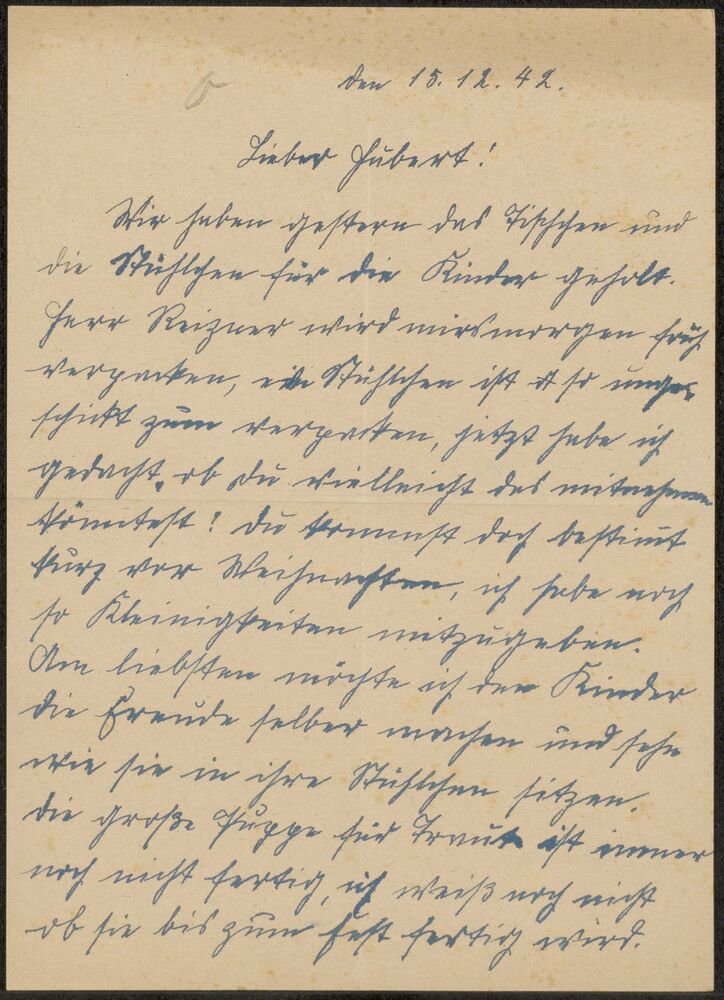 den 15.12.42.
Lieber Hubert!
Wir haben gestern das Tischchen und
die Stühlchen für die Kinder geholt.
Herr Reizner wird mirs morgen früh
verpacken, ein Stühlchen ist so unge-
schickt zum verpacken, jetzt habe ich
gedacht, ob du vielleicht das mitnehmen
könntest? Du kommst doch bestimmt
kurz vor Weihnachten, ich habe noch
so Kleinigkeiten mitzugeben.
Am liebsten möchte ich den Kinder
die Freude selber machen und sehn
wie sie in ihre Stühlchen sitzen.
Die große Puppe für Traut ist immer
noch nicht fertig, ich weiß noch nicht
ob sie bis zum Fest fertig wird.